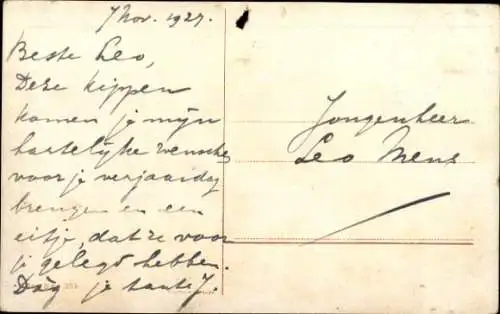 7 Nov. 1927.
Beste Leo,
Deze kippen
komen je mijn
hartelijke wensche
voor je verjaardag
brengen en een
eitje, dat ze voor
je gelegd hebben.
Dàg je tante J.
Jongenheer
Leo Mens